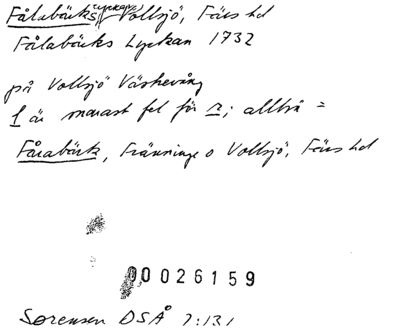 Fålabäcks lyckan, Vollsjö, Färs hd
Fålabäcks Lyckan 1732
på Vollsjö Västeräng
l är snarast fel för r; alltså =
Fårabäck, Fränninge o Vollsjö, Färs hd
00026159
Sørensen DSÅ 7:131